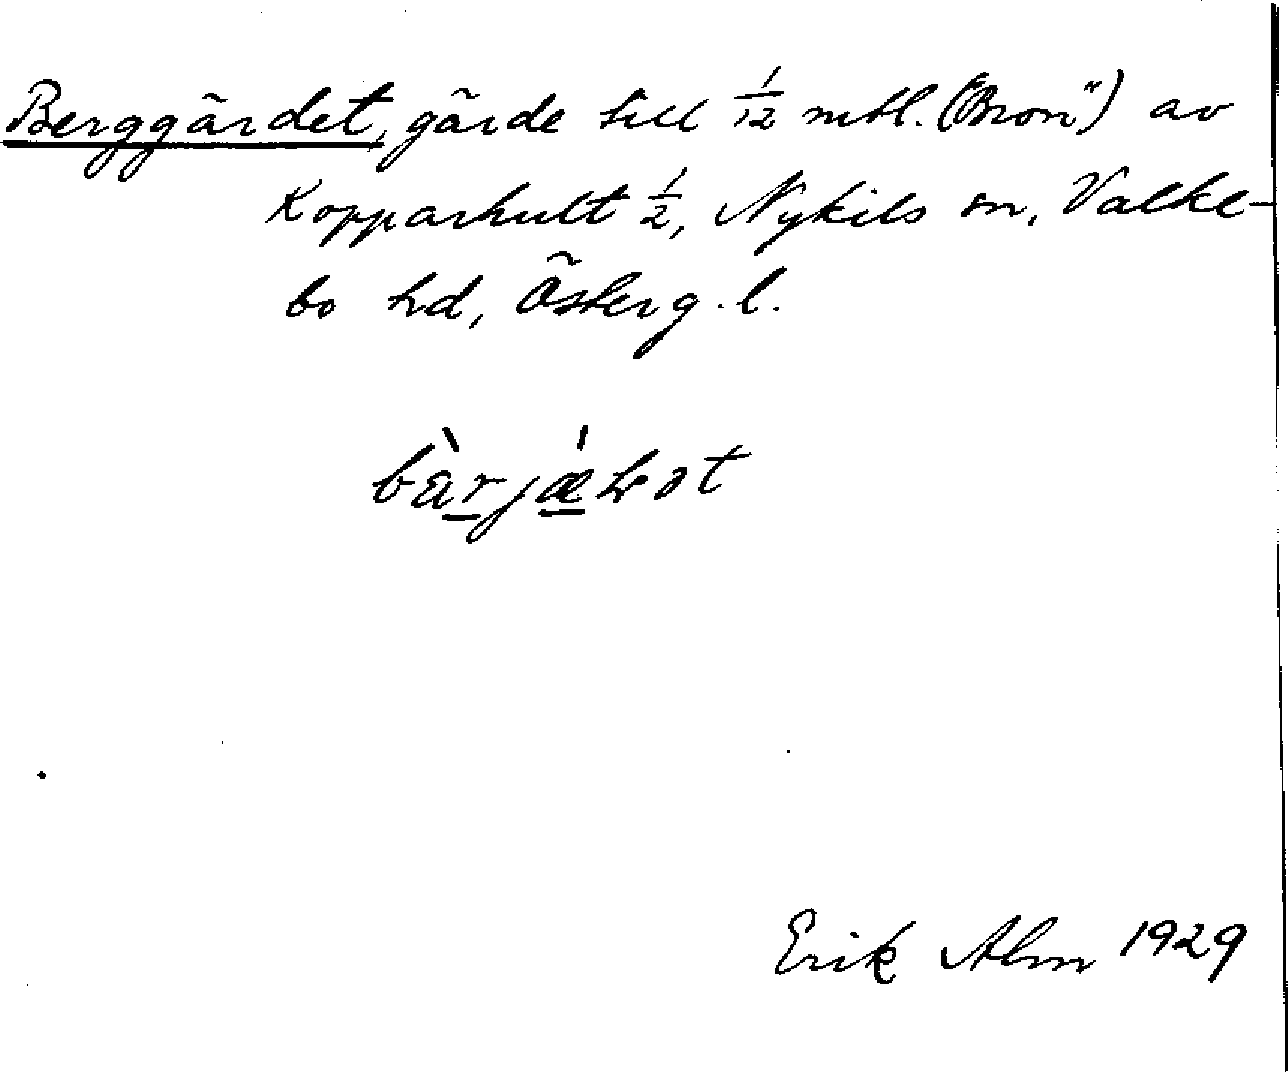 Berggärdet, gärde till 1/12 mtl. ("Bron") av
Kopparhult 1/2, Nykils sn, Valke-
bo hd, Österg. l.
Erik Alm 1929